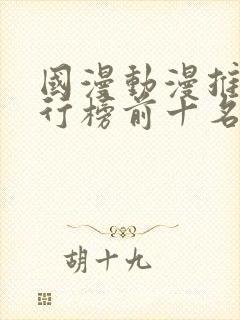 國漫動漫推
行榜前十名
胡十九